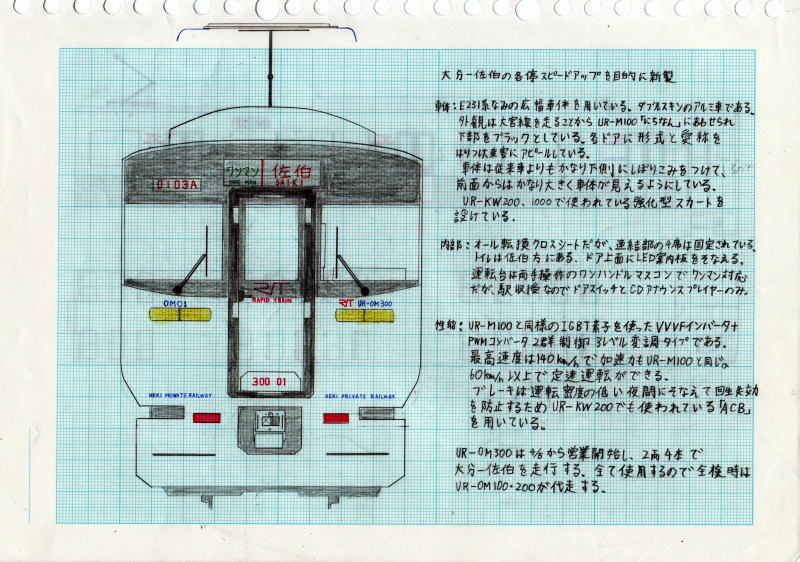 大分ー佐伯の各停スピードアップを目的に新製
車体：E231系なみの広幅車体を用いている。ダブルスキンのアルミ車である。
外観は大宮線を走ることからUR-M100「にちなん」にあわせられ
下部をブラックとしている。各ドアに形式と愛称を
はりつけ乗客にアピールしている。
車体は従来車よりもかなり下側にしぼりこみをつけて、
前面からはかなり大きく車体が見えるようにしている。
UR-KW200、1000で使われている強化型スカートを
設けている。
内部：オール転換クロスシートだが、連結部の4席は固定されている。
トイレは佐伯方にある。ドア上面にLED案内板をそなえる。
運転台は両手操作のワンハンドルマスコンでワンマン対応
だが、駅収受なのでドアスイッチとCDアナウンスプレイヤーのみ。
性能：UR-M100と同様のIGBT素子を使ったVVVFインバータ+
PWMコンバータ2群制御3レベル変調タイプである。
最高速度は140km/hで加速力もUR-M100と同じ。
60km/h以上で定速運転ができる。
ブレーキは運転密度の低い夜間にそなえて回生失効
を防止するためUR-KW200でも使われている「ACB」
を用いている。
UR-OM300は から営業開始し、2両4本で
大分ー佐伯を走行する。全て使用するので全検時は
UR-OM100・200が代走する。
0103A
ワンマン
ONE MAN
佐伯
SAIKI
OM01
RAPID TRAIN
UR-OM300
300 01
UEKI PRIVATE RAILWAY
UEKI PRIVATE RAILWAY